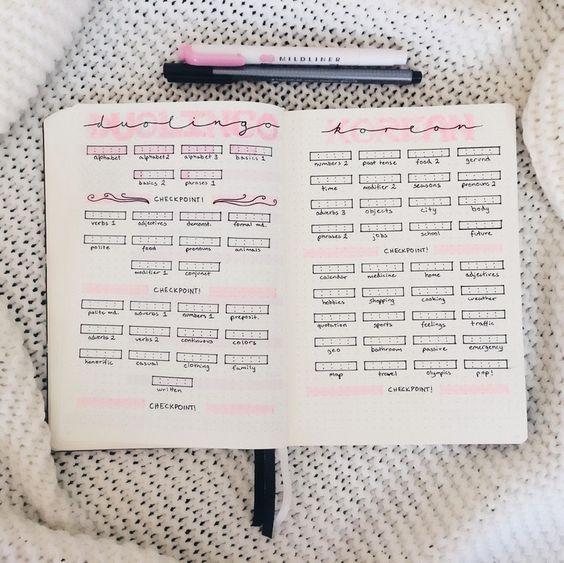 MILDLINER
duolingo
alphabet alphabet 2 alphabet 3 basics 1
basics 2 phrases 1
CHECKPOINT!
verbs 1 adjectives demonst. formal md.
polite food pronouns animals
modifier 1 conjunct.
CHECKPOINT!
polite md. adverbs 1 numbers 1 preposit.
adverbs 2 verbs 2 continuous colors
honorific casual clothing family
written
CHECKPOINT!
korean
numbers 2 past tense food 2 gerund
time modifier 2 seasons pronouns 2
adverbs 3 objects city body
phrases 2 jobs school future
CHECKPOINT!
calendar medicine home adjectives
hobbies shopping cooking weather
quotation sports feelings traffic
geo bathroom passive emergency
map travel olympics pop!
CHECKPOINT!